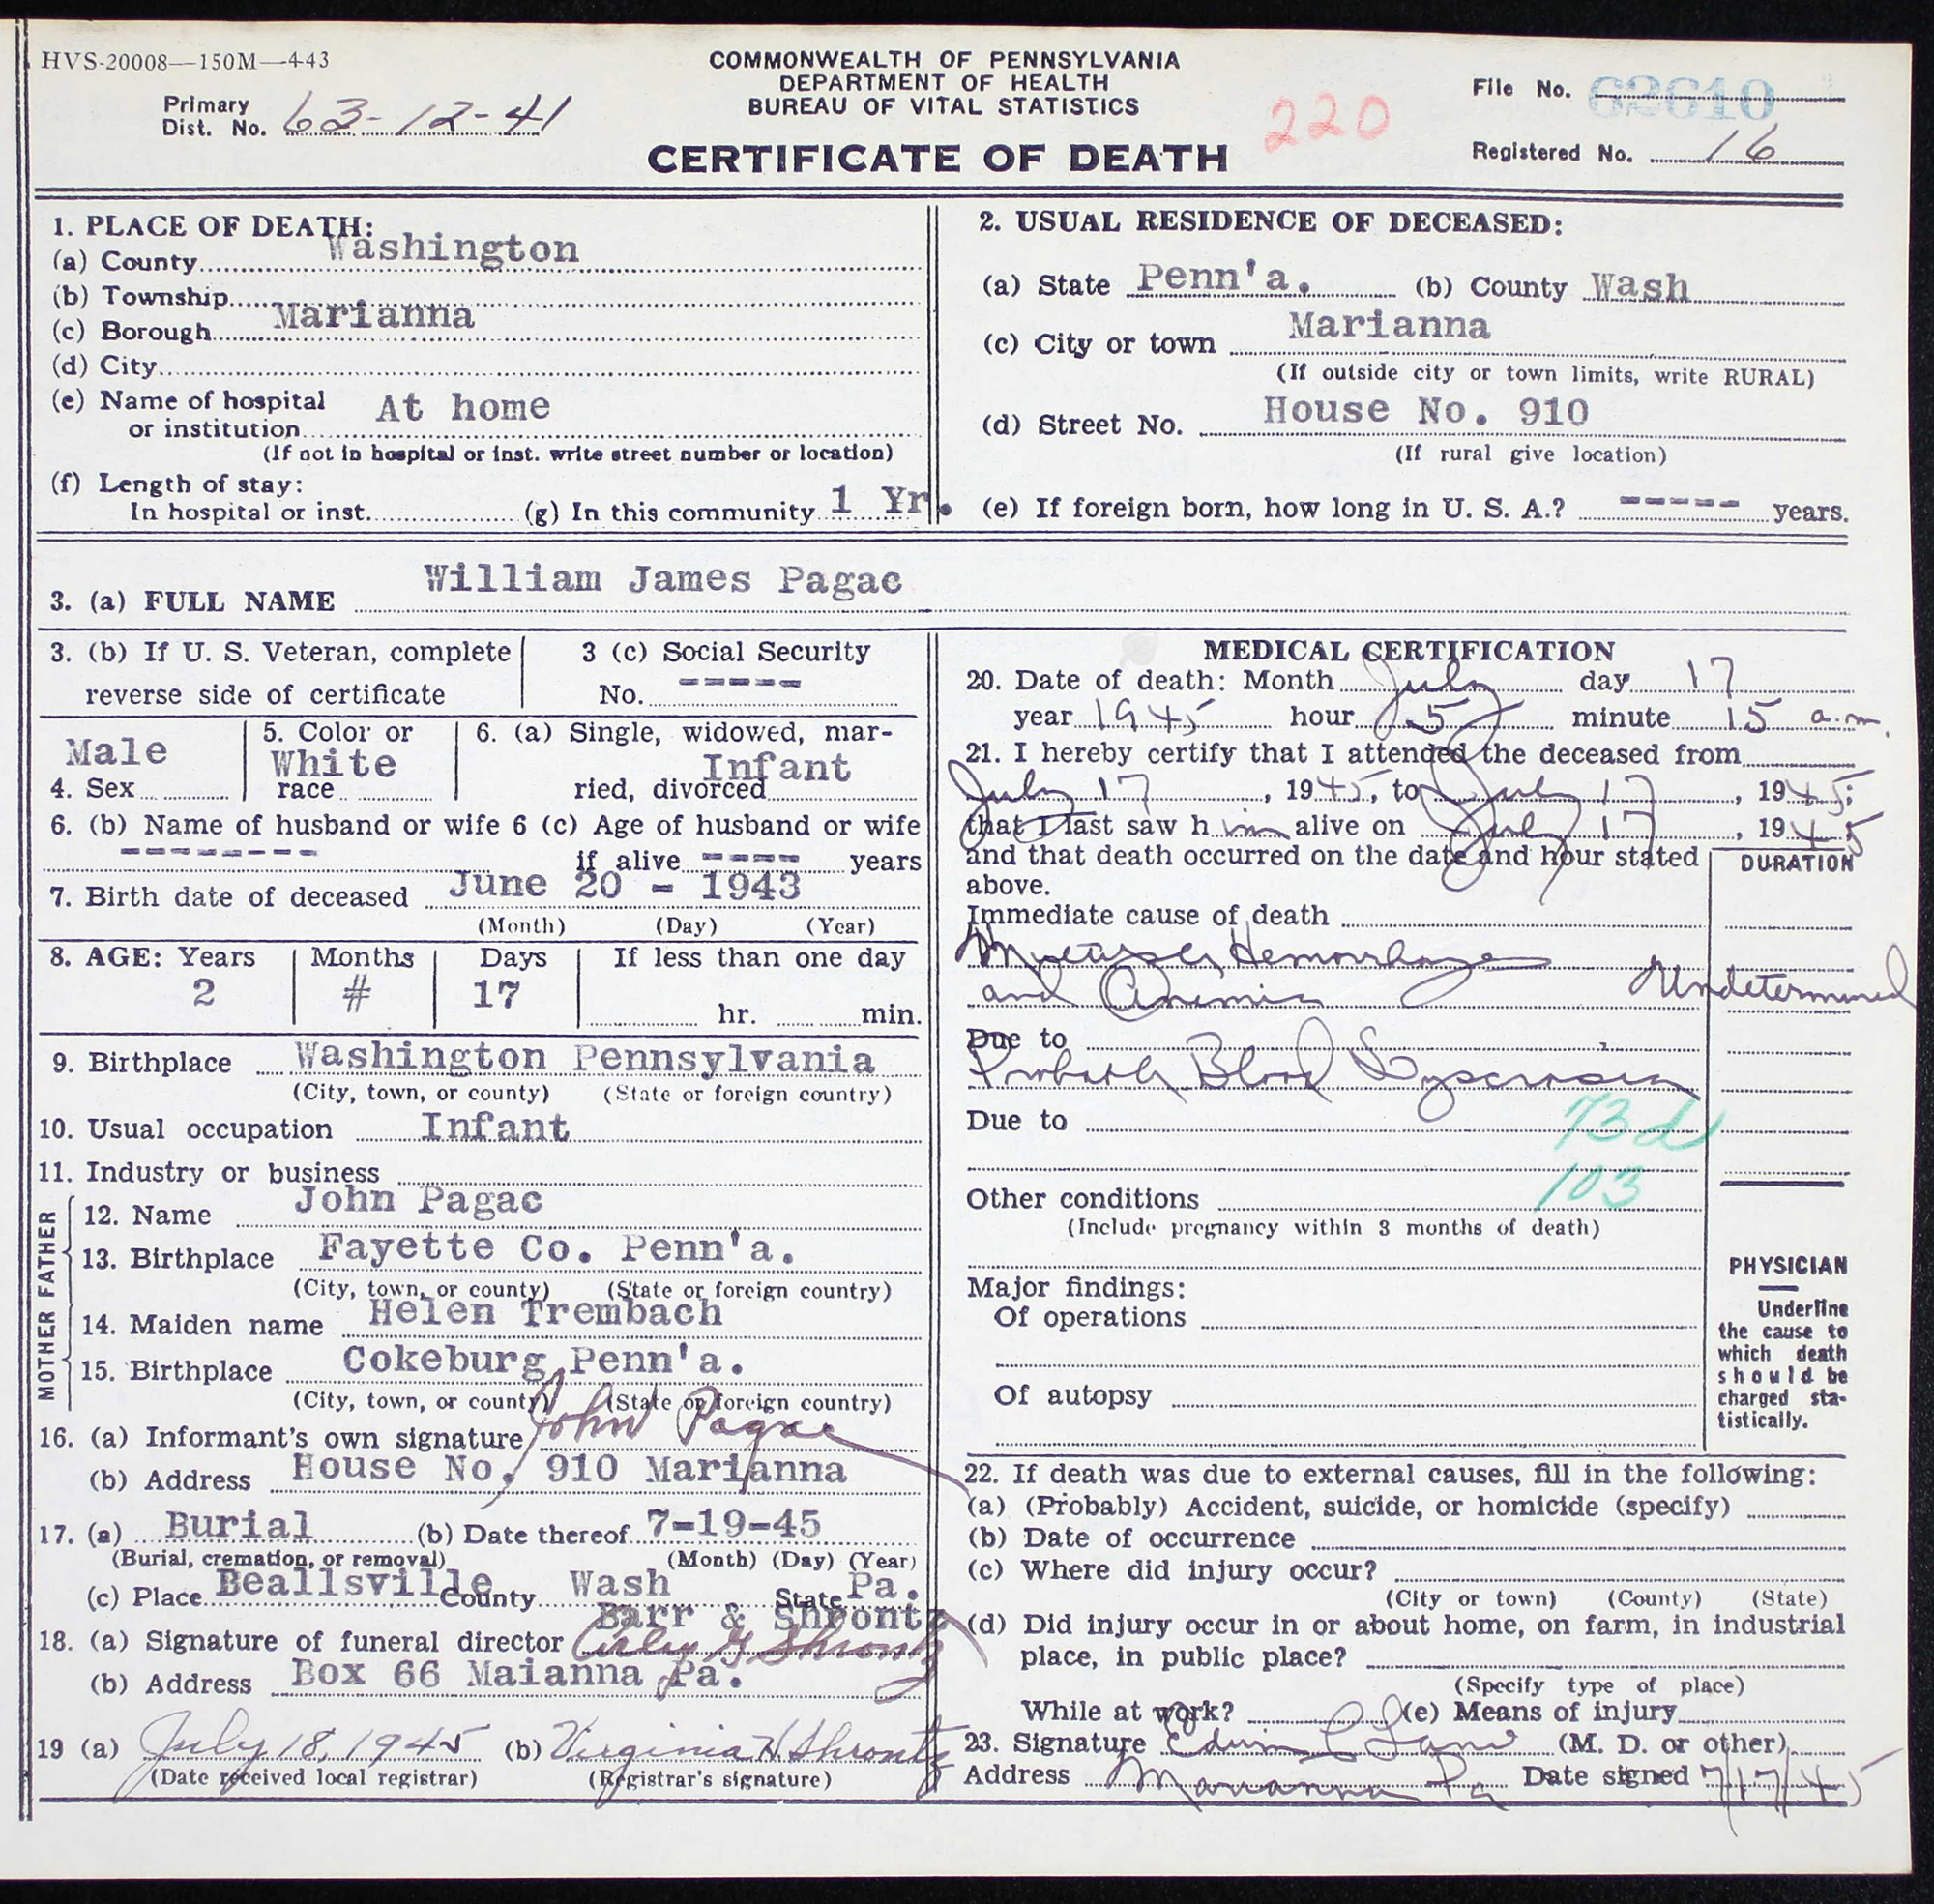 HVS-20008—150M—4-43
COMMONWEALTH OF PENNSYLVANIA
DEPARTMENT OF HEALTH
BUREAU OF VITAL STATISTICS
CERTIFICATE OF DEATH
Primary
Dist. No. 63-12-41
220
File No. 62610
Registered No. 16
1. PLACE OF DEATH:
(a) County Washington
(b) Township
(c) Borough Marianna
(d) City
(e) Name of hospital At home
or institution
(If not in hospital or inst. write street number or location)
(f) Length of stay:
In hospital or inst. (g) In this community 1 Yr.
2. USUAL RESIDENCE OF DECEASED:
(a) State Penn'a. (b) County Wash
(c) City or town Marianna
(If outside city or town limits, write RURAL)
(d) Street No. House No. 910
(If rural give location)
(e) If foreign born, how long in U. S. A.? ----- years.
3. (a) FULL NAME William James Pagac
3. (b) If U. S. Veteran, complete
reverse side of certificate
3 (c) Social Security
No. -----
Male
4. Sex
5. Color or
White
race
6. (a) Single, widowed, mar-
Infant
ried, divorced
6. (b) Name of husband or wife 6 (c) Age of husband or wife
-------- if alive ---- years
7. Birth date of deceased June 20 - 1943
(Month) (Day) (Year)
8. AGE: Years Months Days If less than one day
2 # 17
hr. min.
9. Birthplace Washington Pennsylvania
(City, town, or county) (State or foreign country)
10. Usual occupation Infant
11. Industry or business
FATHER
12. Name John Pagac
13. Birthplace Fayette Co. Penn'a.
(City, town, or county) (State or foreign country)
MOTHER
14. Maiden name Helen Trembach
15. Birthplace Cokeburg Penn'a.
(City, town, or county) (State or foreign country)
16. (a) Informant's own signature John Pagac
(b) Address House No. 910 Marianna
17. (a) Burial (b) Date thereof 7-19-45
(Burial, cremation, or removal) (Month) (Day) (Year)
(c) Place Beallsville County Wash State Pa.
Barr & Shrontz
18. (a) Signature of funeral director Shrontz
(b) Address Box 66 Maianna Pa.
19 (a) July 18, 1945 (b) Virginia H Shrontz
(Date received local registrar) (Registrar's signature)
MEDICAL CERTIFICATION
20. Date of death: Month July day 17
year 1945 hour 5 minute 15 a.m.
21. I hereby certify that I attended the deceased from
July 17, 1945, to July 17, 1945;
that I last saw him alive on July 17, 1945
and that death occurred on the date and hour stated
above.
DURATION
Immediate cause of death
Multiple Hemorrhages
and Anemia Undetermined
Due to
Probable Blood Dyscrasia
Due to
73d
103
Other conditions
(Include pregnancy within 3 months of death)
Major findings:
Of operations
Of autopsy
PHYSICIAN
Underline
the cause to
which death
should be
charged sta-
tistically.
22. If death was due to external causes, fill in the following:
(a) (Probably) Accident, suicide, or homicide (specify)
(b) Date of occurrence
(c) Where did injury occur?
(City or town) (County) (State)
(d) Did injury occur in or about home, on farm, in industrial
place, in public place?
(Specify type of place)
While at work? (e) Means of injury
23. Signature Edwin (M. D. or other)
Address Marianna Pa Date signed 7/17/45